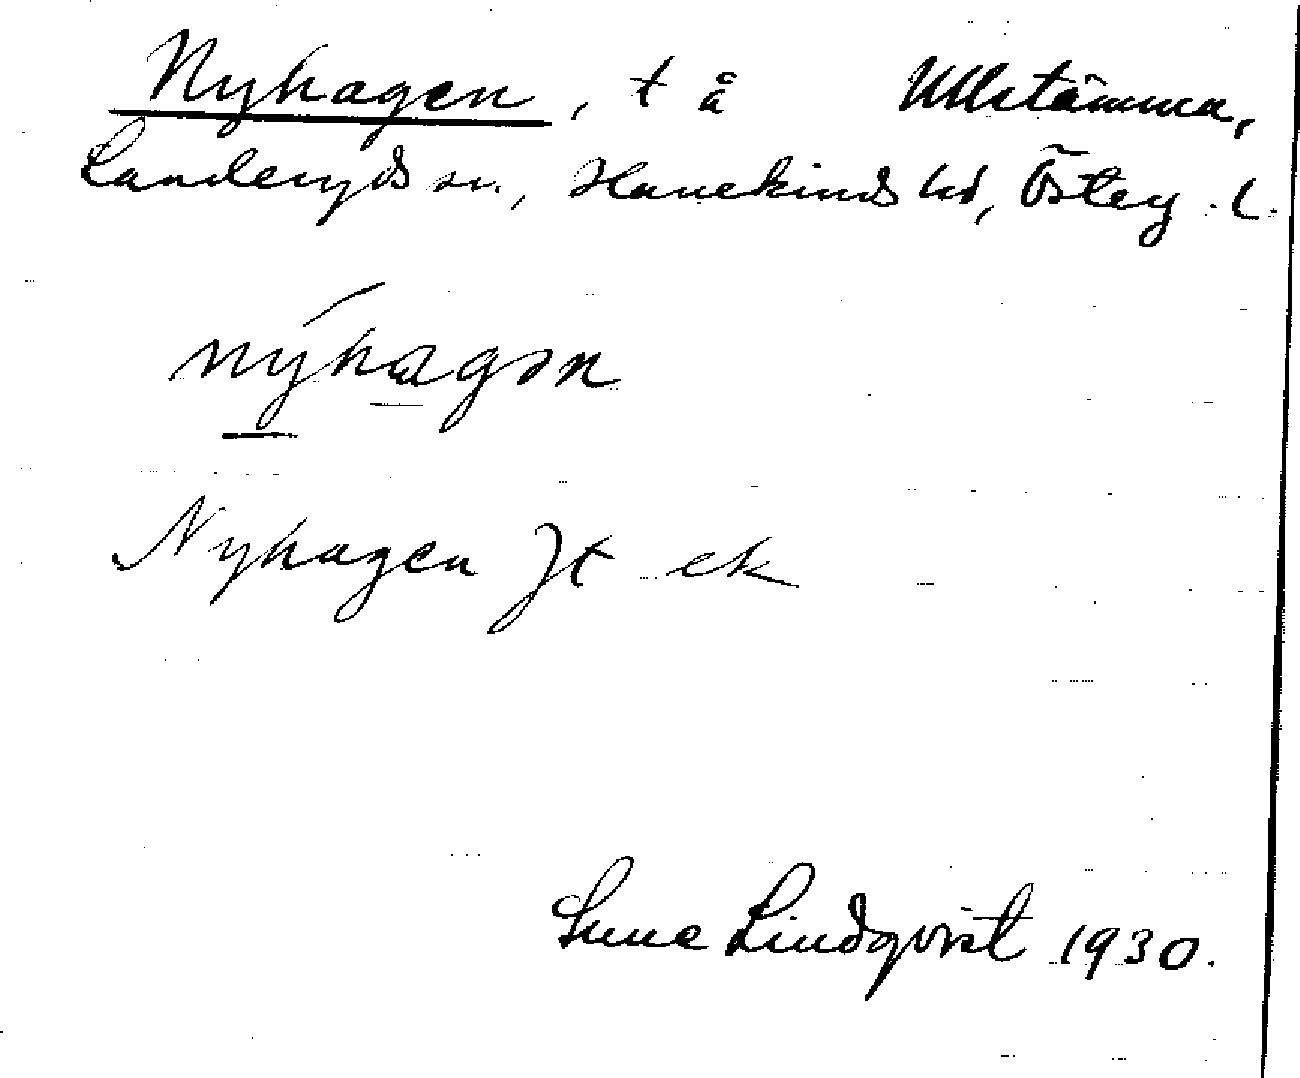 Nyhagen, t å Ullstämma,
Landeryds sn., Hanekinds hd, Österg. l.
nýhagən
Nyhagen Jt ek
Sune Lindqvist 1930.